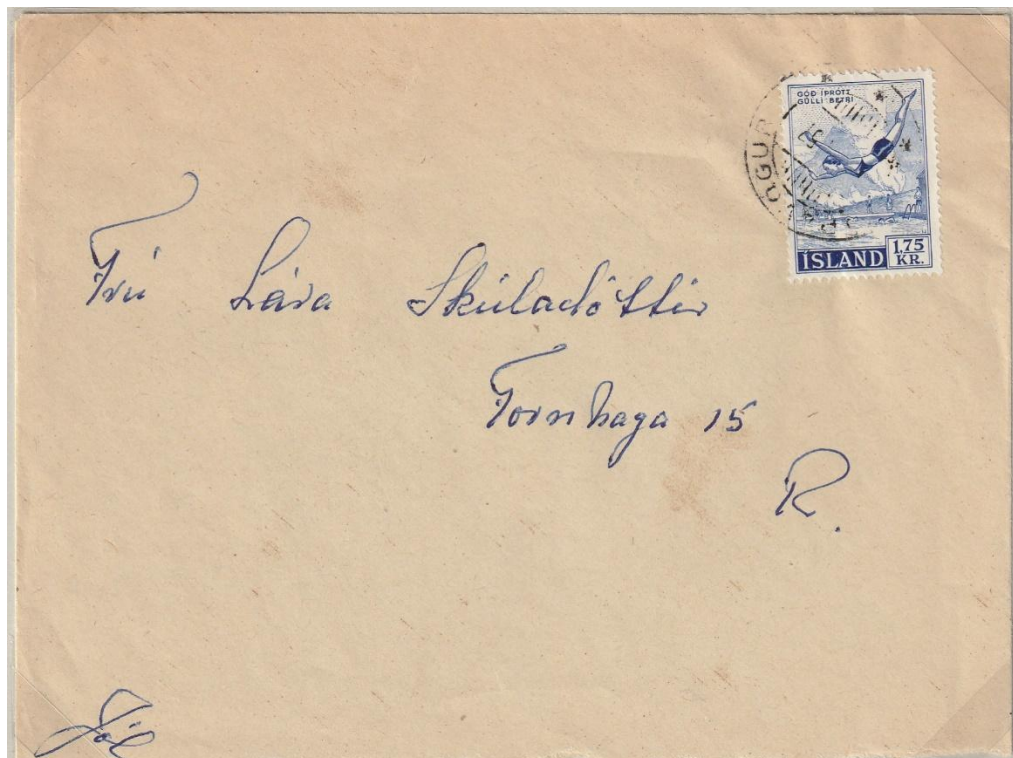 GÓÐ ÍÞRÓTT
GULLI BETRI
ÍSLAND 1,75 KR.
Frú Lára Skúladóttir
Fornhaga 15
R.
Jól